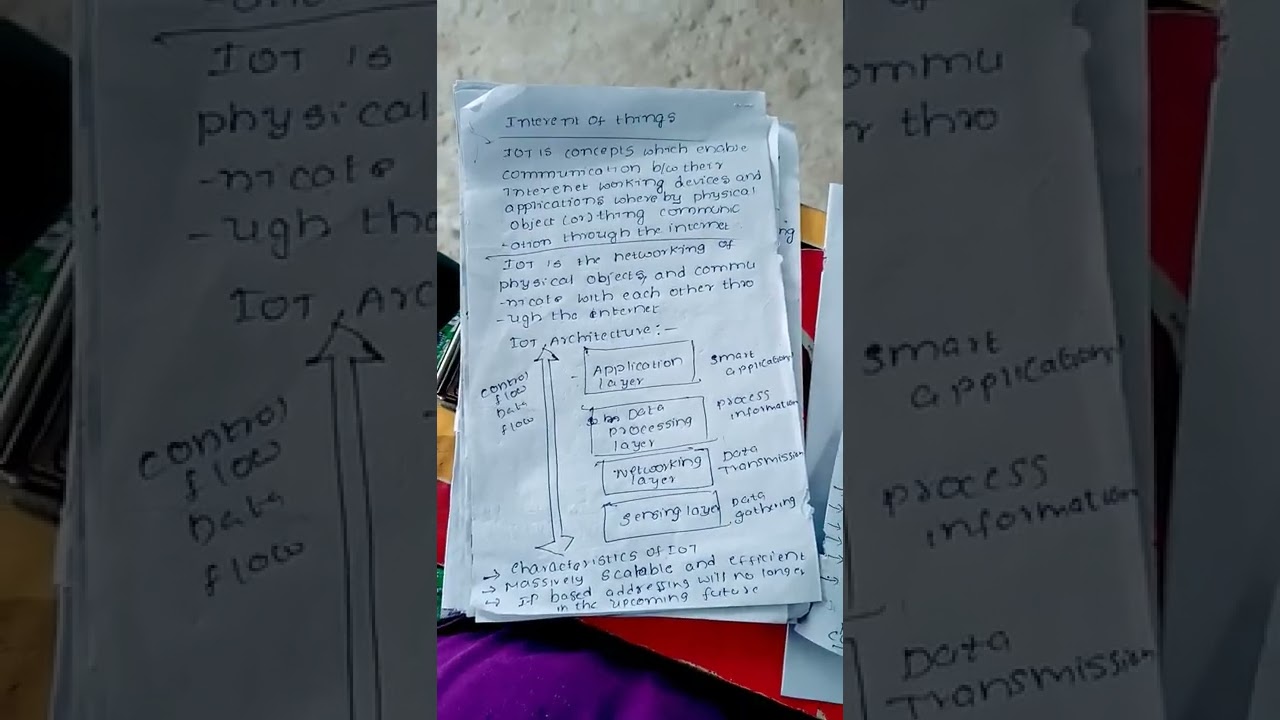 Interent of things
IOT is concepts which enable
communication b/w their
interenet working devices and
applications where by physical
object (or) thing communic
-ation through the internet
IOT is the networking of
physical objects, and commu
-nicate with each other thro
-ugh the internet
IOT Architecture :-
control
flow
Data
flow
Application
layer
smart
applications
Data
processing
layer
process
information
Networking
layer
Data
Transmission
sensing layer
Data
gathering
→ characteristics of IOT
→ Massively scalable and efficient
→ I-P based addressing will no longer
in the upcoming future